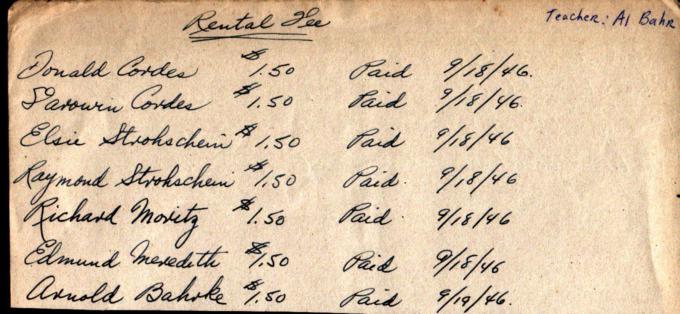 Rental Fee
Teacher: Al Bahr
Donald Cordes $1.50 Paid 9/18/46.
Cordes $1.50 Paid 9/18/46.
Elsie Strohschein $1.50 Paid 9/18/46
Raymond Strohschein $1.50 Paid. 9/18/46
Richard Moritz $1.50 Paid. 9/18/46
Edmund Meredith $1.50 Paid 9/18/46
Arnold Bahrke $1.50 Paid 9/19/46.